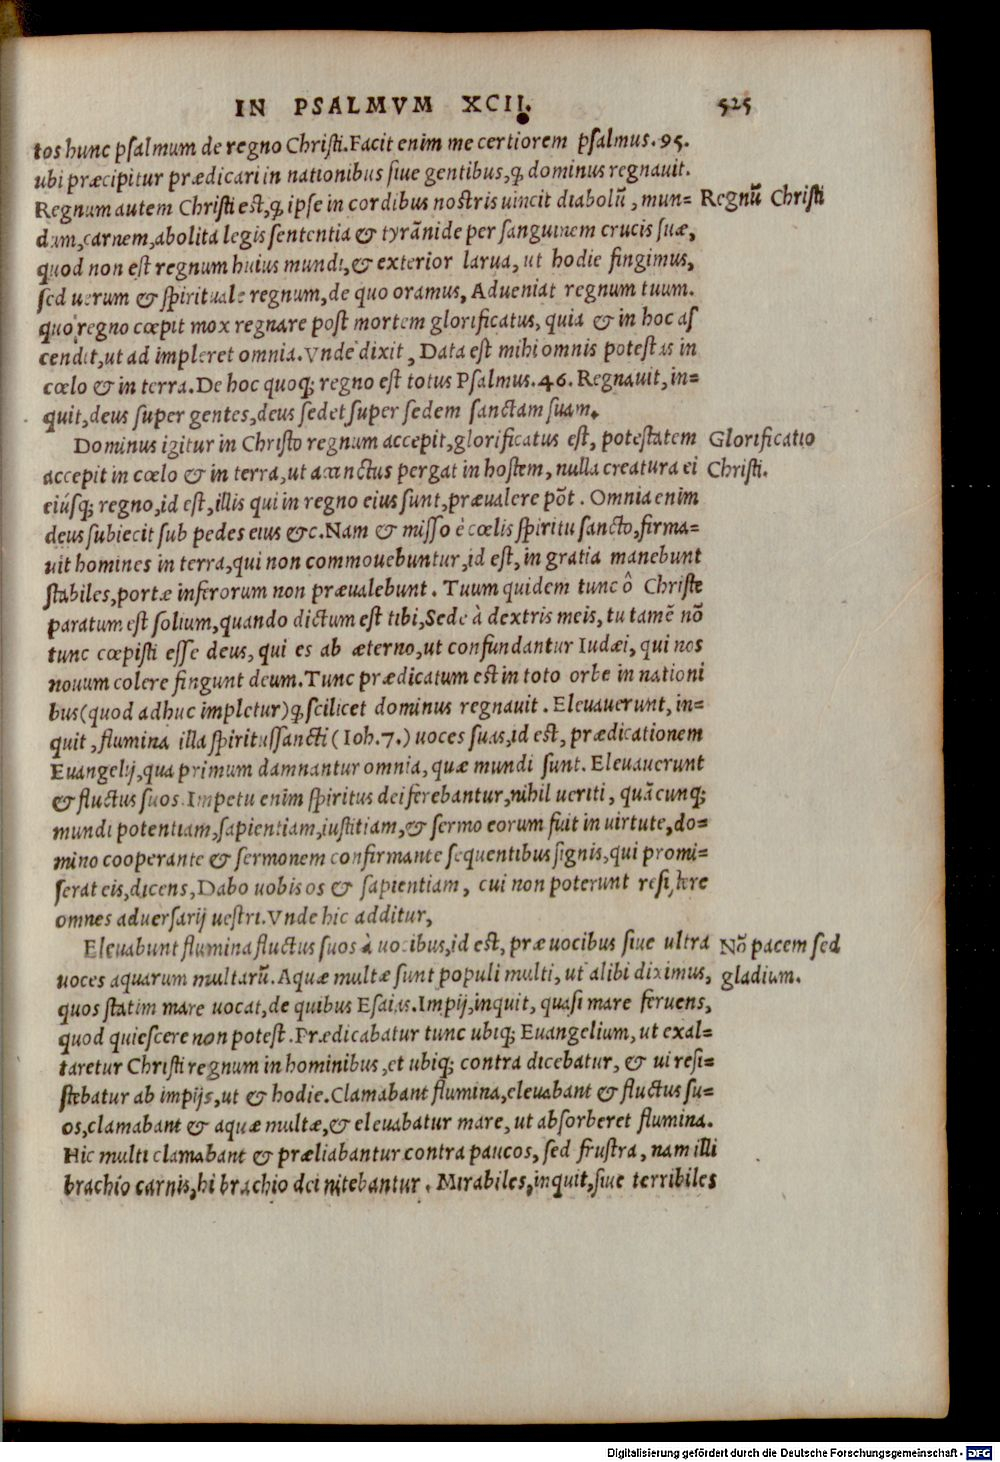 IN PSALMVM XCII. 525
tos hunc psalmum de regno Christi. Facit enim me certiorem psalmus. 95.
ubi præcipitur prædicari in nationibus siue gentibus, ꝙ dominus regnauit.
Regnum autem Christi est, ꝙ ipse in cordibus nostris uincit diabolũ, mun= Regnũ Christi
dum, carnem, abolita legis sententia & tyrãnide per sanguinem crucis suæ,
quod non est regnum huius mundi, & exterior larua, ut hodie fingimus,
sed uerum & spirituale regnum, de quo oramus, Adueniat regnum tuum.
quo regno cœpit mox regnare post mortem glorificatus, quia & in hoc as
cendit, ut ad impleret omnia. Vnde dixit, Data est mihi omnis potestas in
cœlo & in terra. De hoc quoq; regno est totus Psalmus. 46. Regnauit, in=
quit, deus super gentes, deus sedet super sedem sanctam suam.
Dominus igitur in Christo regnum accepit, glorificatus est, potestatem Glorificatio
accepit in cœlo & in terra, ut accinctus pergat in hostem, nulla creatura ei Christi.
eiúsq; regno, id est, illis qui in regno eius sunt, præualere põt. Omnia enim
deus subiecit sub pedes eius &c. Nam & misso è cœlis spiritu sancto, firma=
uit homines in terra, qui non commouebuntur, id est, in gratia manebunt
stabiles, portæ inferorum non præualebunt. Tuum quidem tunc ô Christe
paratum est solium, quando dictum est tibi, Sede à dextris meis, tu tamẽ nõ
tunc cœpisti esse deus, qui es ab æterno, ut confundantur Iudæi, qui nos
nouum colere fingunt deum. Tunc prædicatum est in toto orbe in nationi
bus (quod adhuc impletur) ꝙ scilicet dominus regnauit. Eleuauerunt, in=
quit, flumina illa spiritussancti (Ioh. 7.) uoces suas, id est, prædicationem
Euangelij, qua primum damnantur omnia, quæ mundi sunt. Eleuauerunt
& fluctus suos. Impetu enim spiritus dei ferebantur, nihil ueriti, quãcunq;
mundi potentiam, sapientiam, iustitiam, & sermo eorum fuit in uirtute, do=
mino cooperante & sermonem confirmante sequentibus signis, qui promi=
serat eis, dicens, Dabo uobis os & sapientiam, cui non poterunt resistere
omnes aduersarij uestri. Vnde hic additur,
Eleuabunt flumina fluctus suos à uocibus, id est, præ uocibus siue ultra Nõ pacem sed
uoces aquarum multarũ. Aquæ multæ sunt populi multi, ut alibi diximus, gladium.
quos statim mare uocat, de quibus Esaias. Impij, inquit, quasi mare feruens,
quod quiescere non potest. Prædicabatur tunc ubiq; Euangelium, ut exal=
taretur Christi regnum in hominibus, et ubiq; contra dicebatur, & ui resi=
stebatur ab impijs, ut & hodie. Clamabant flumina, eleuabant & fluctus su=
os, clamabant & aquæ multæ, & eleuabatur mare, ut absorberet flumina.
Hic multi clamabant & præliabantur contra paucos, sed frustra, nam illi
brachio carnis, hi brachio dei nitebantur. Mirabiles, inquit, siue terribiles
Digitalisierung gefördert durch die Deutsche Forschungsgemeinschaft - DFG